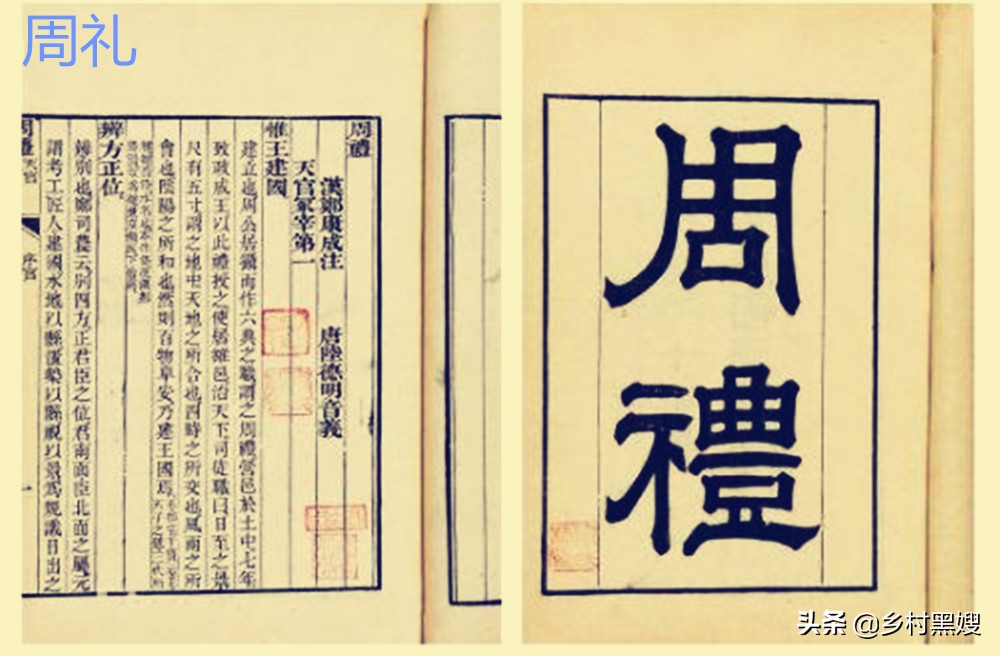 周礼
周禮
漢鄭康成注　唐陸德明音義
天官冢宰第一
惟王建國
建立也周公居攝而作六典之職謂之周禮營邑於土中七年
致政成王以此禮授之使居雒邑治天下司徒職曰日至之景
尺有五寸謂之地中天地之所合也四時之所交也風雨之所
會也陰陽之所和也然則百物阜安乃建王國焉
辨方正位
辨別也鄭司農云別四方正君臣之位君南面臣北面之屬元
謂考工匠人建國水地以縣置槷以縣眡以景爲規識日出之
周禮 天官 序官 一
周禮
头条 @乡村黑嫂